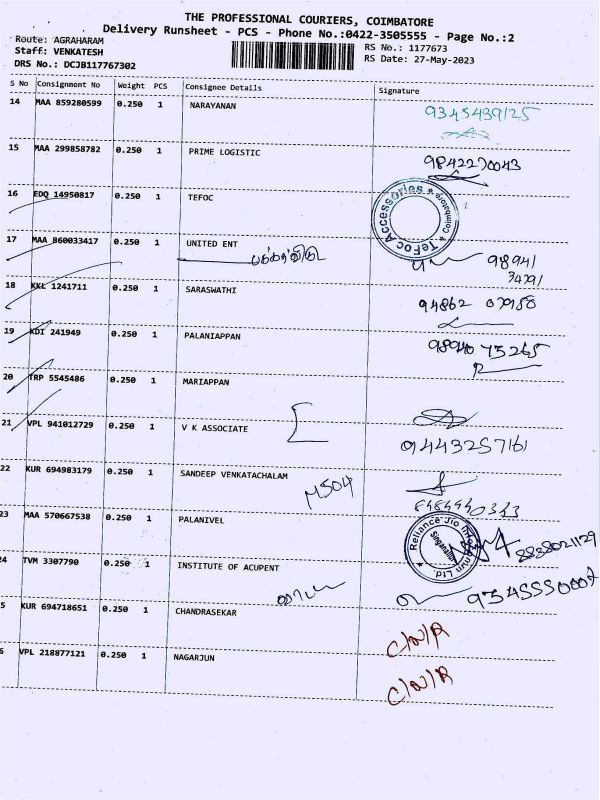 THE PROFESSIONAL COURIERS, COIMBATORE
Delivery Runsheet - PCS - Phone No.:0422-3505555 - Page No.:2
Route: AGRAHARAM
Staff: VENKATESH
DRS No.: DCJB117767302
RS No.: 1177673
RS Date: 27-May-2023
S No Consignment No Weight PCS Consignee Details Signature
14 MAA 859280599 0.250 1 NARAYANAN 9345439125
15 MAA 299858782 0.250 1 PRIME LOGISTIC 9842270043
16 EDQ 14950817 0.250 1 TEFOC
TeFoc Accessories * Coimbatore *
17 MAA 860033417 0.250 1 UNITED ENT 98941
34791
18 KKL 1241711 0.250 1 SARASWATHI 94862
19 KDI 241949 0.250 1 PALANIAPPAN 98940 75265
20 TRP 5545486 0.250 1 MARIAPPAN
21 VPL 941012729 0.250 1 V K ASSOCIATE 9443257161
22 KUR 694983179 0.250 1 SANDEEP VENKATACHALAM M504
23 MAA 570667538 0.250 1 PALANIVEL
Reliance Jio Ltd. 8838021129
24 TVM 3307790 0.250 1 INSTITUTE OF ACUPENT
5 KUR 694718651 0.250 1 CHANDRASEKAR C/N/R
6 VPL 218877121 0.250 1 NAGARJUN C/N/R